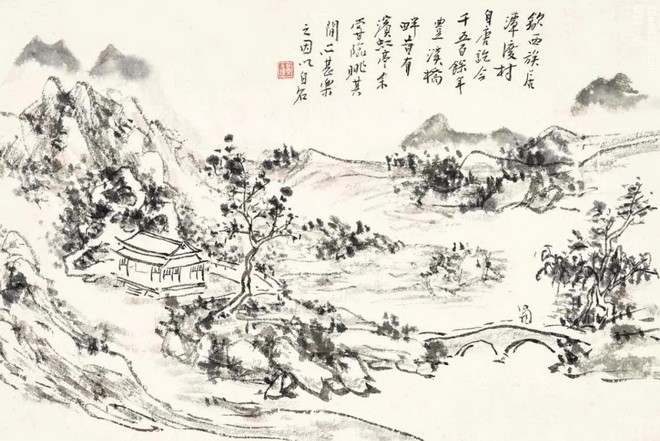 歙西族居
潭渡村
自唐訖今
千五百餘年
豐溪橋
畔有
濱虹亭余
嘗臨眺其
間心甚樂
之因以自名